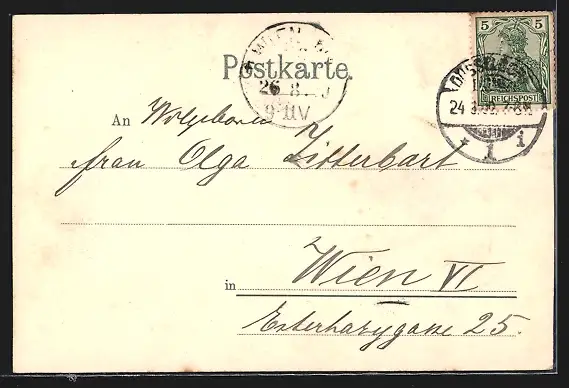 5 5
REICHSPOST
DÜSSELDORF
24
1 i
WIEN
Postkarte.
26 8
9·UV
An Wolgeboren
frau Olga Zitterbart
in Wien VI
Esterhazygasse 25.